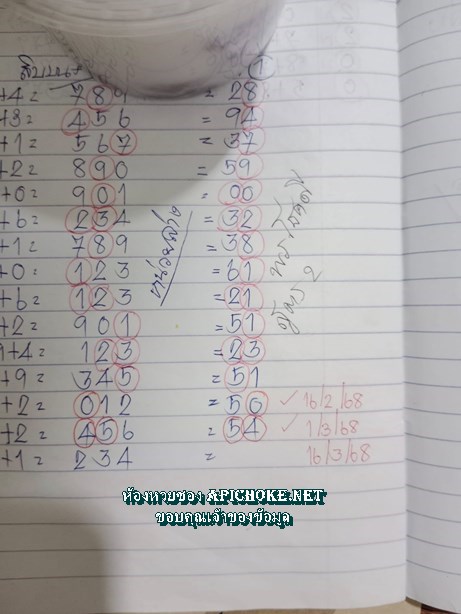 สิบบน
①
+4 = 789 = 28
+8 = 456 = 94
+1 = 567 = 37
+2 = 890 = 59
+0 = 901 = 00
+6 = 234 = 32
+1 = 789 = 38
+0 = 123 = 61
+6 = 123 = 21
+2 = 901 = 51
9+4 = 123 = 23
+9 = 345 = 51
+2 = 012 = 50 ✓ 16/2/68
+2 = 456 = 54 ✓ 1/3/68
+1 = 234 = 16/3/68
ห้องหวยซอง APICHOKE.NET
ขอบคุณเจ้าของข้อมูล